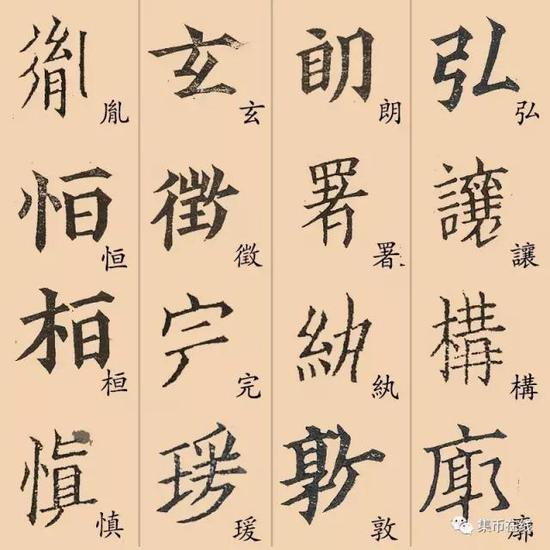 胤 玄 朗 弘
胤 玄 朗 弘
恒 徵 署 讓
恒 徵 署 讓
桓 完 紈 構
桓 完 紈 構
慎 瑗 敦 廓
慎 瑗 敦 廓
集币在线